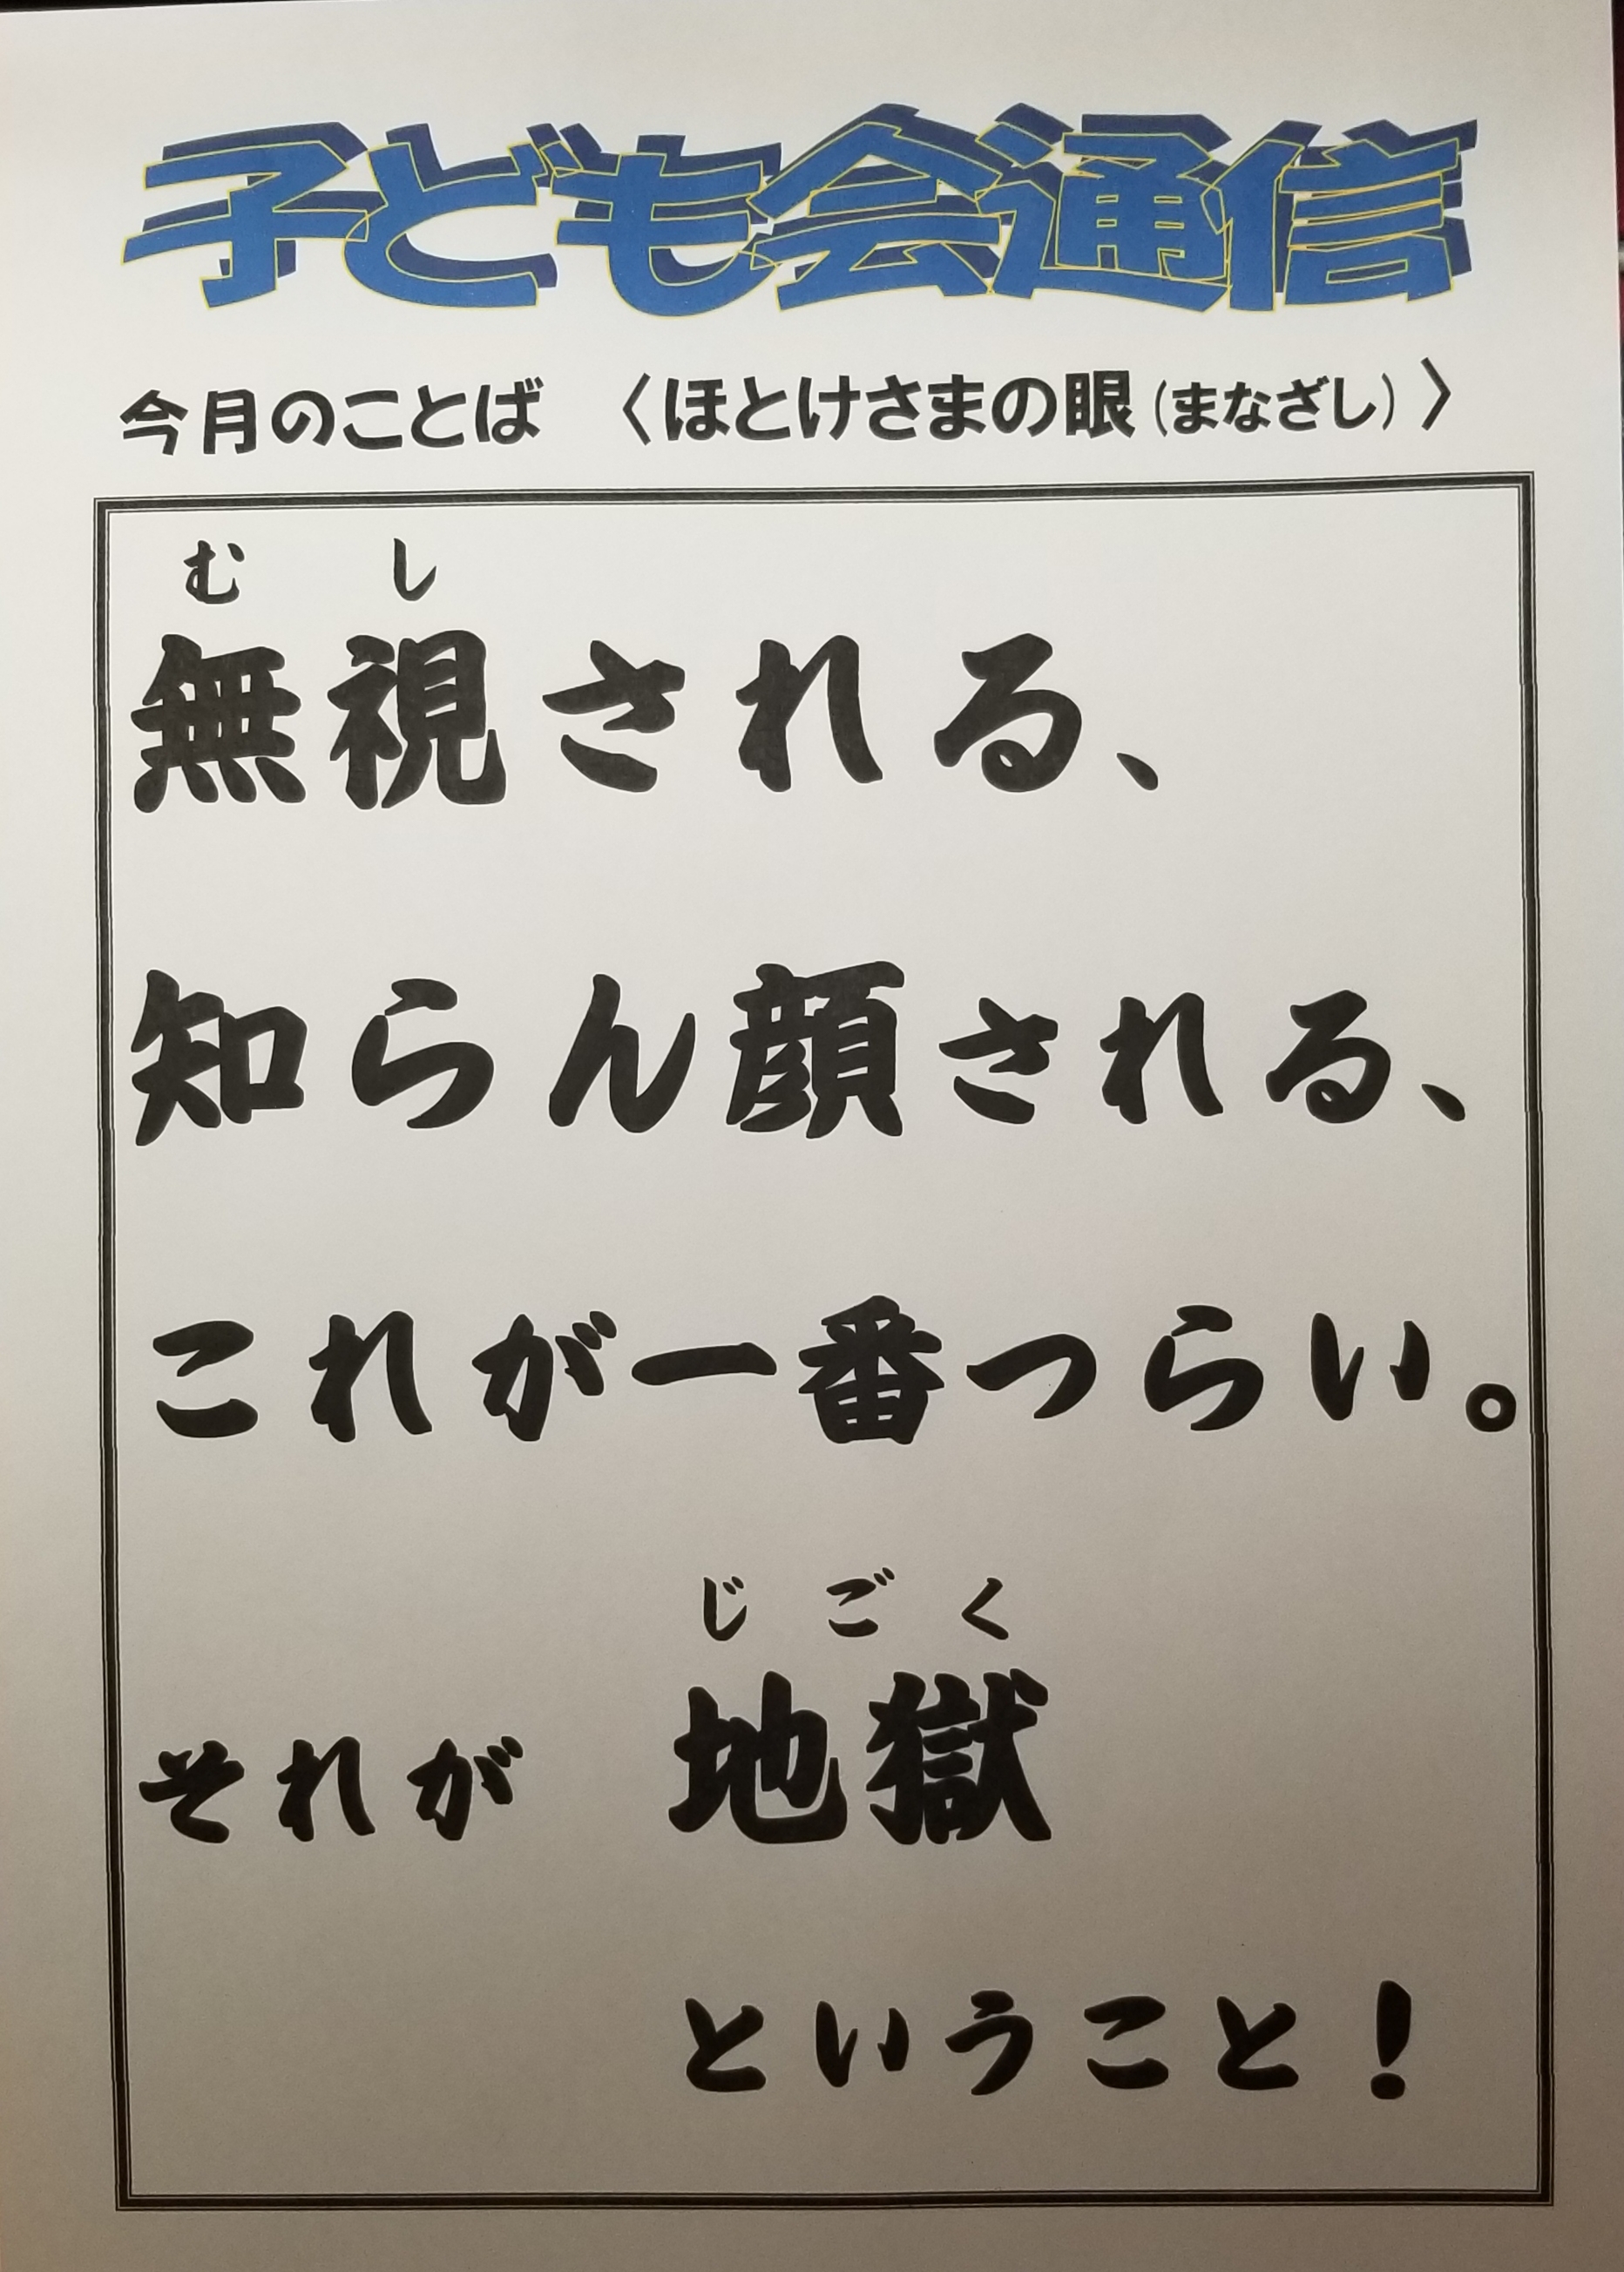 子ども会通信
今月のことば　〈ほとけさまの眼(まなざし)〉
むし
無視される、
知らん顔される、
これが一番つらい。
じごく
それが　地獄
ということ！